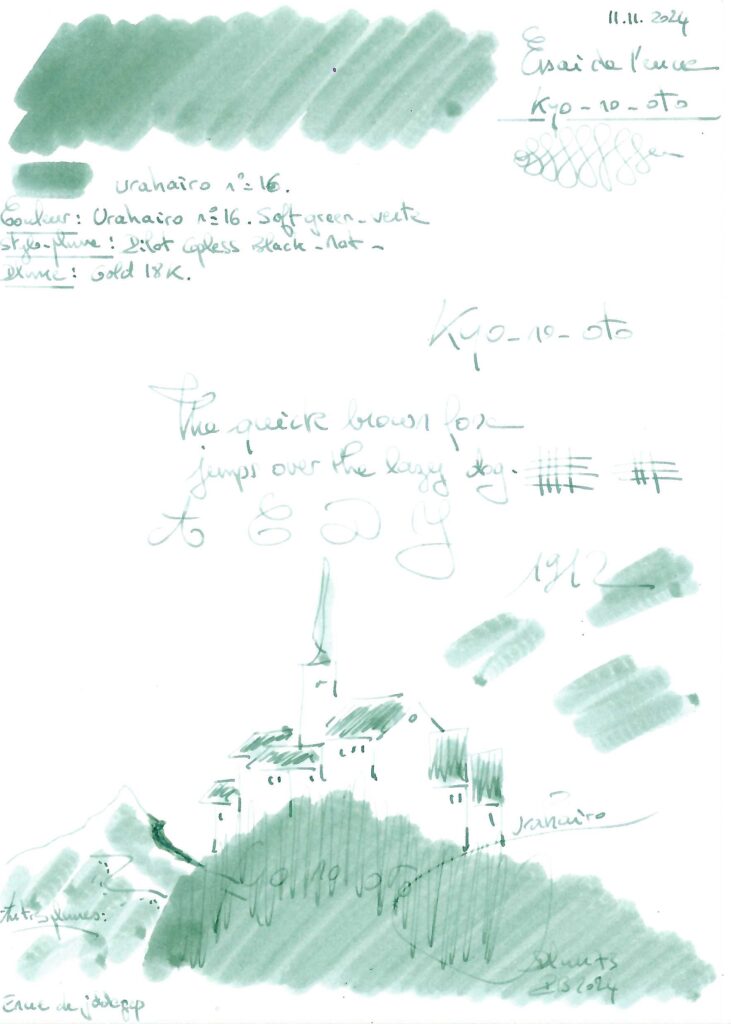 11.11. 2024
Essai de l'encre
Kyo-no-oto
urahairo n°=16.
Couleur: Urahairo n°=16. Soft green-verte
Stylo-plume: Pilot Capless Black-Mat-
Plume: Gold 18K.
Kyo-no-oto
The quick brown fox
jumps over the lazy dog.
A E D Y
1912
urahairo
Kyo no oto
2024